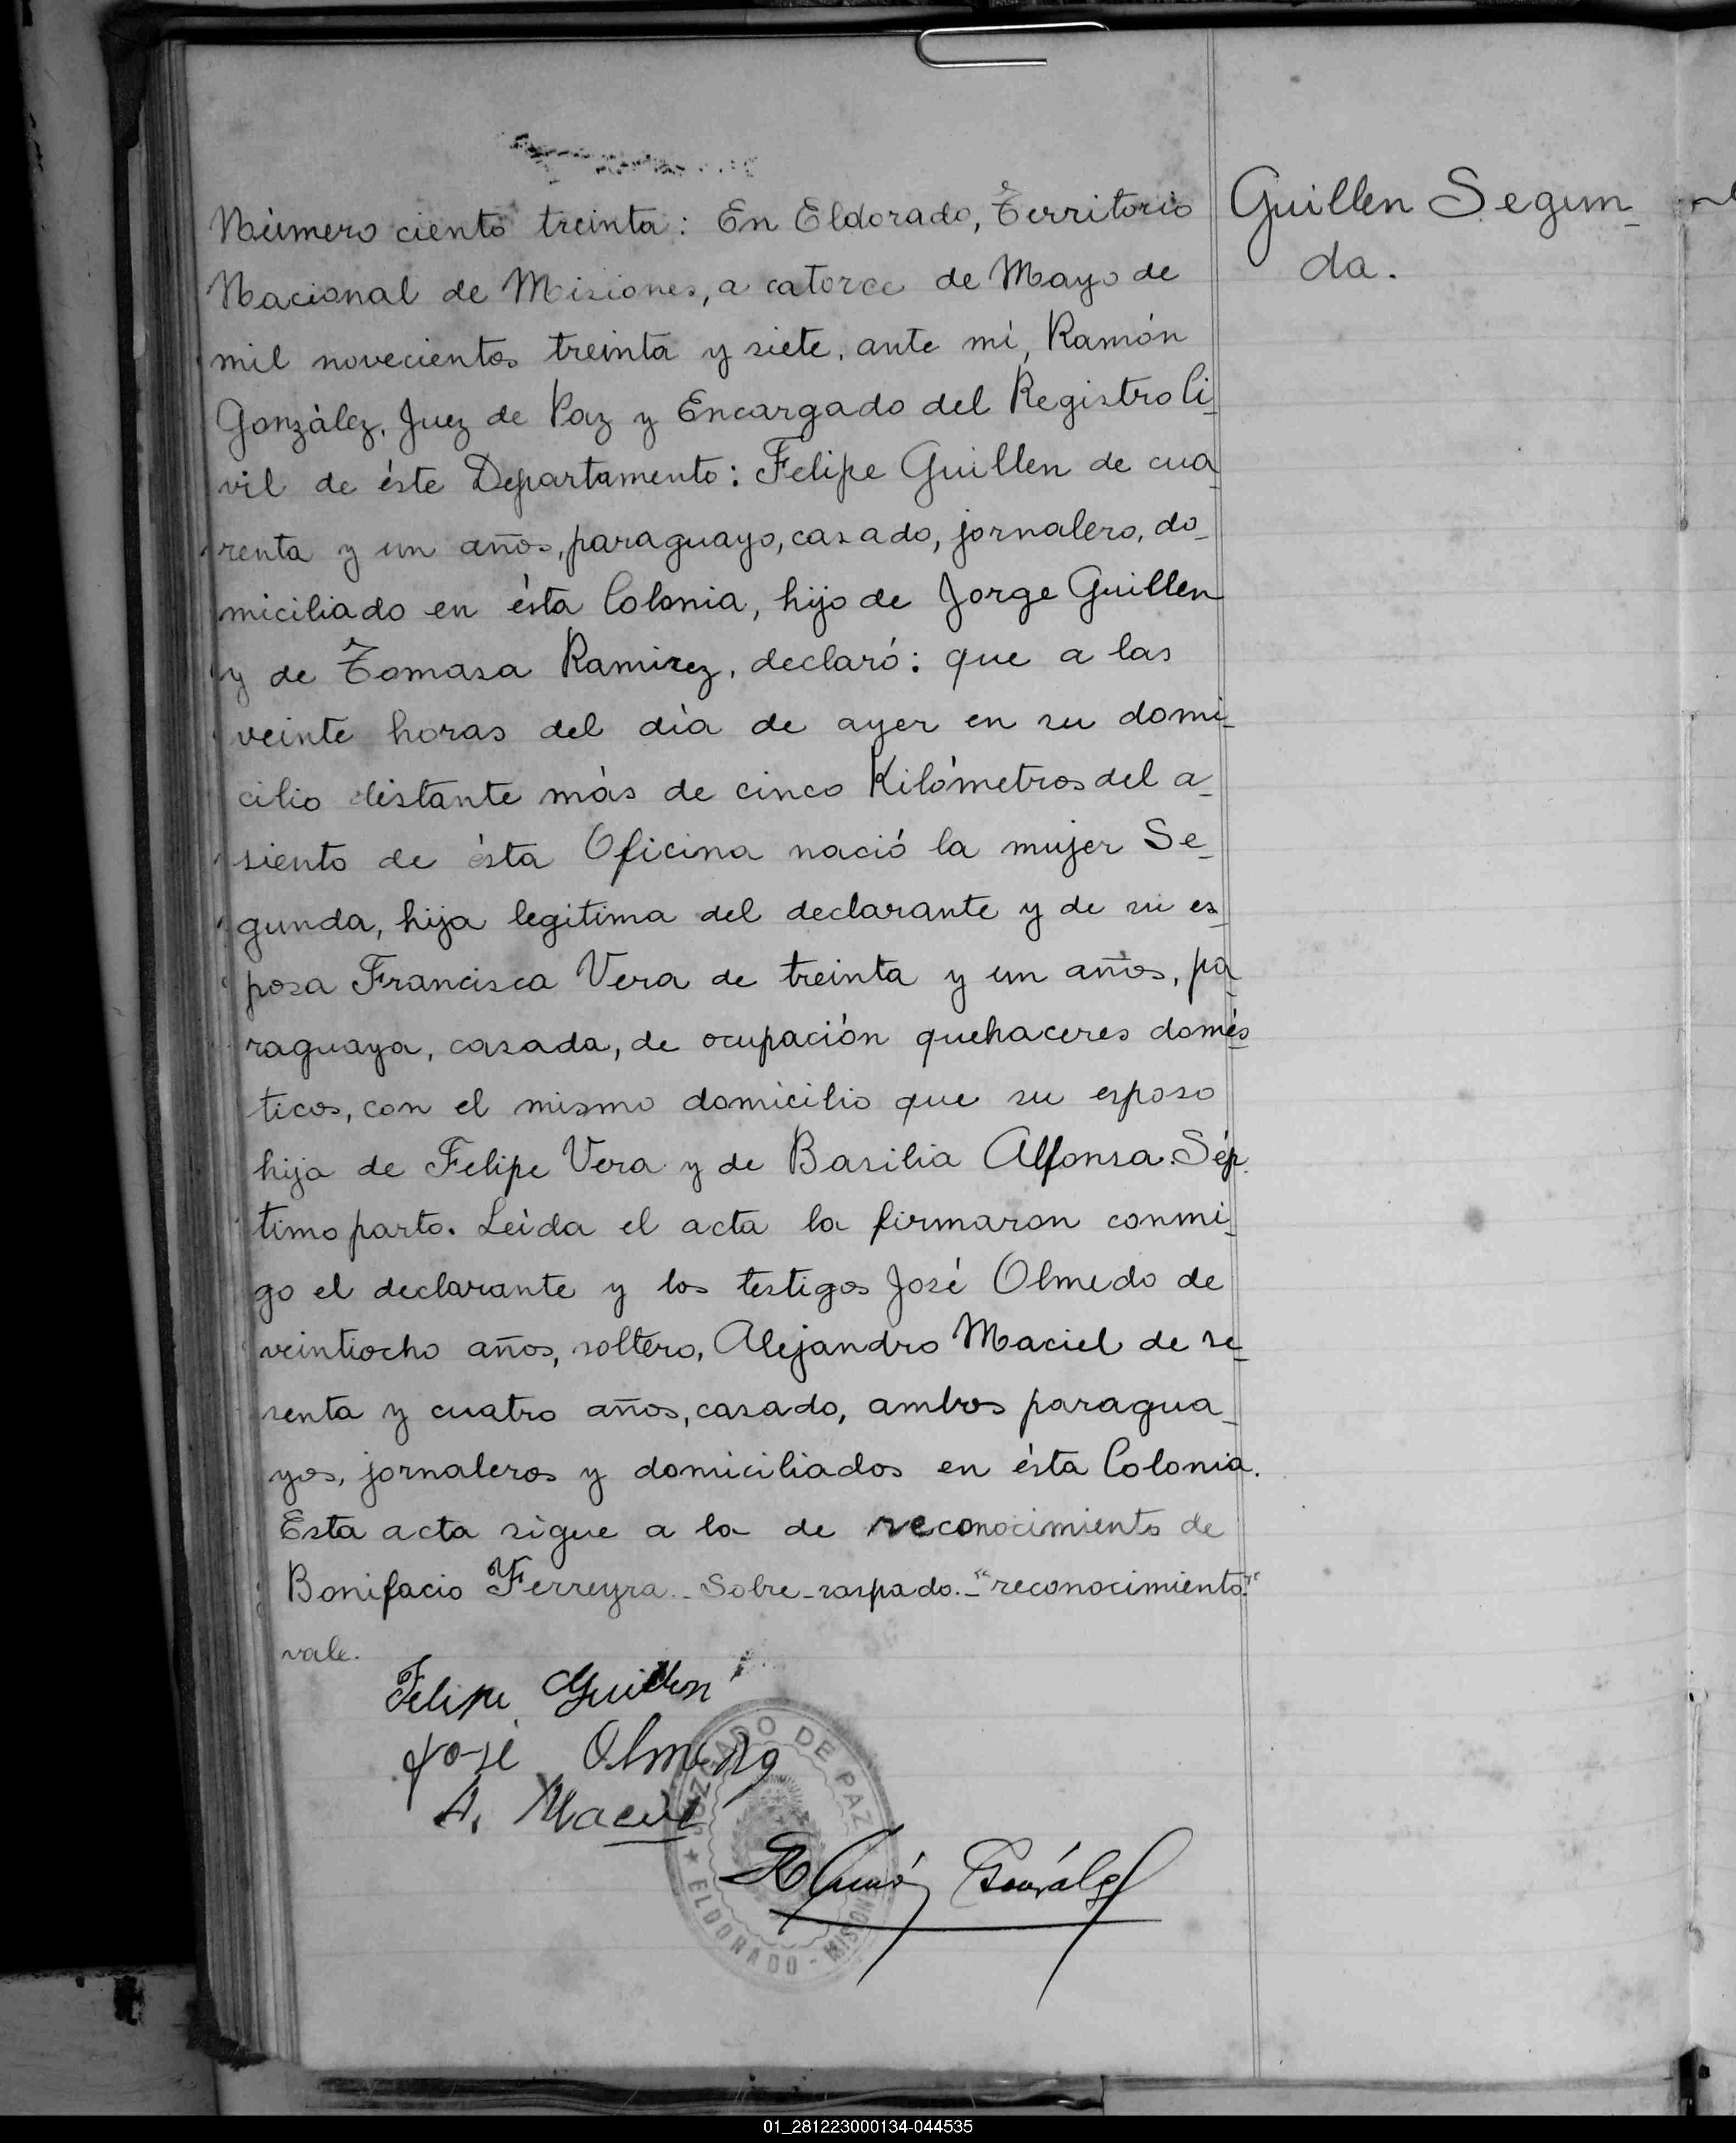 Guillen Segun_
da.
Número ciento treinta: En Eldorado, Territorio
Nacional de Misiones, a catorce de Mayo de
mil novecientos treinta y siete, ante mí, Ramón
González, Juez de Paz y Encargado del Registro Ci_
vil de éste Departamento: Felipe Guillen de cua_
renta y un años, paraguayo, casado, jornalero, do_
miciliado en ésta Colonia, hijo de Jorge Guillen
y de Tomasa Ramirez, declaró: que a las
veinte horas del día de ayer en su domi_
cilio distante más de cinco Kilómetros del a_
siento de ésta Oficina nació la mujer Se_
gunda, hija legitima del declarante y de su es_
posa Francisca Vera de treinta y un años, pa_
raguaya, casada, de ocupación quehaceres domés_
ticos, con el mismo domicilio que su esposo
hija de Felipe Vera y de Basilia Alfonsa. Sép_
timo parto. Leída el acta la firmaron conmi_
go el declarante y los testigos José Olmedo de
veintiocho años, soltero, Alejandro Maciel de se_
senta y cuatro años, casado, ambos paragua_
yos, jornaleros y domiciliados en ésta Colonia.
Esta acta sigue a la de reconocimiento de
Bonifacio Ferreyra._ Sobre_raspado._"reconocimiento."
vale.
Felipe Guillen
José Olmedo
A. Maciel
Ramón González
JUZGADO DE PAZ
★ ELDORADO - MISIONES
01_281223000134-044535